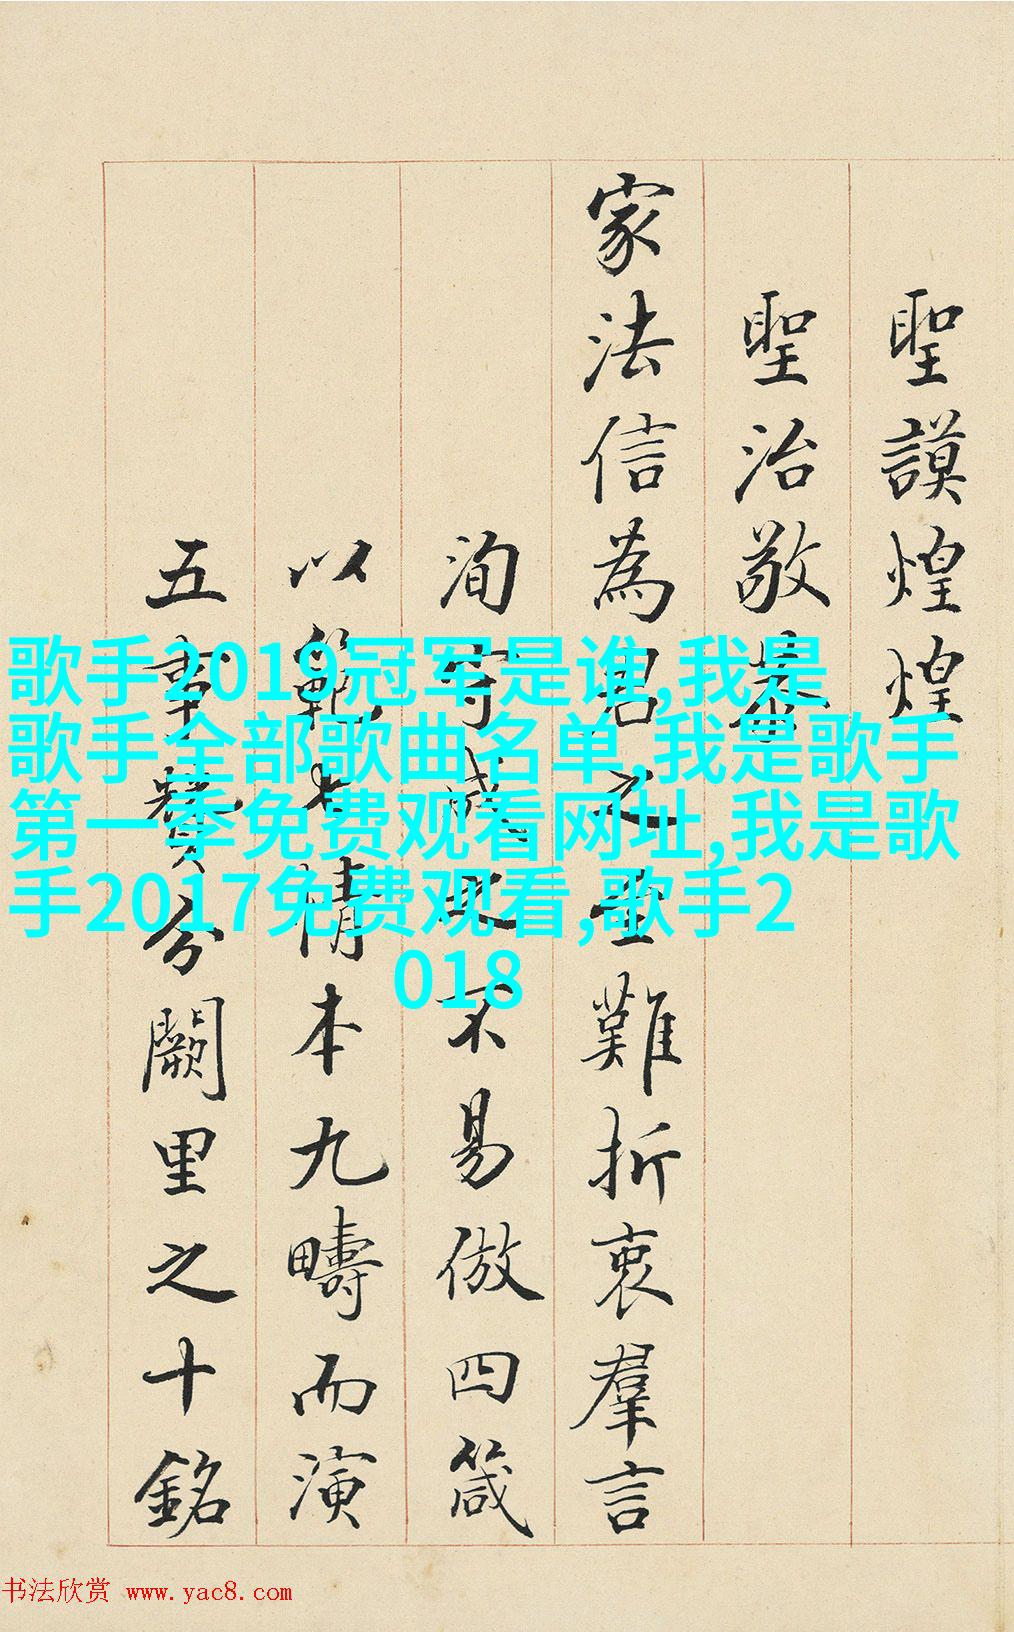 聖謨煌煌
聖治敬
家法信為君之難折衷羣言
洵守成之不易倣四箴
以範七情本九疇而演
五事分闕里之十銘
歌手2019冠军是谁,我是
歌手全部歌曲名单,我是歌手
第一季免费观看网址,我是歌
手2017免费观看,歌手2
018
书法欣赏 www.yac8.com